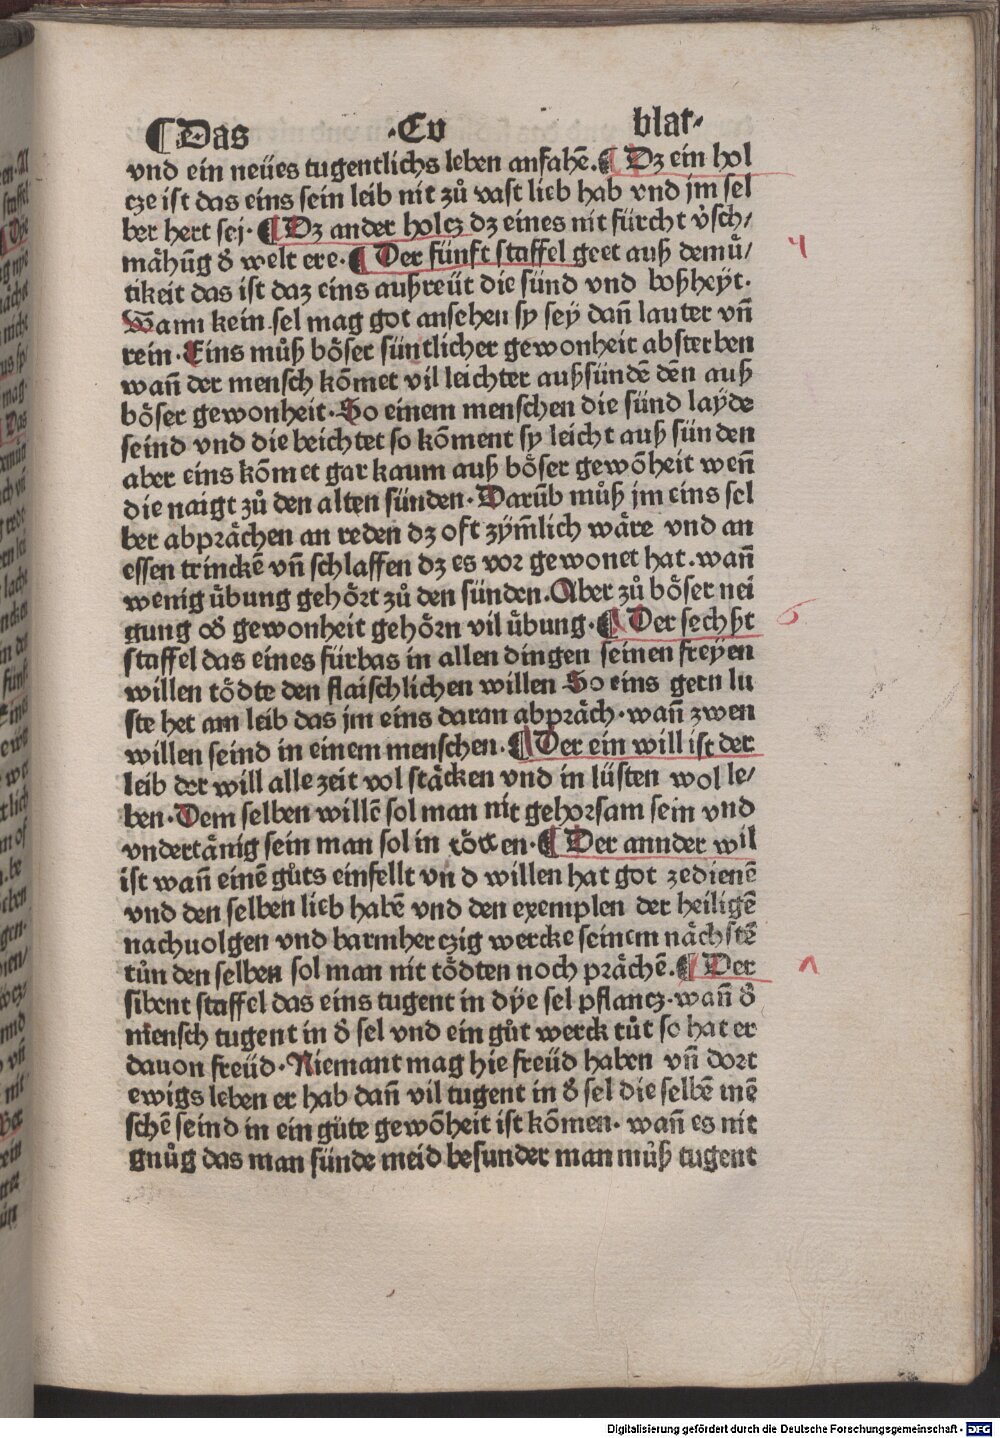 ¶Das ·Cv blat·
vnd ein neües tugentlichs leben anfahē.¶Dz ein hol
cze ist das eins sein leib nit zů vast lieb hab vnd jm sel
ber hert sej·¶Dz ander holcz dz eines nit fürcht v̊sch/
mähūg d̊ welt ere·¶Der fünft staffel geet auß demů/
tikeit das ist daz eins außreüt die sünd vnd boßheyt·
Wann kein sel mag got ansehen sy sey dañ lauter vñ
rein·Eins můß böser süntlicher gewonheit absterben
wañ der mensch kōmet vil leichter außsündē dēn auß
böser gewonheit·So einem menschen die sünd layde
seind vnd die beichtet so kōment sy leicht auß sünden
aber eins kōmet gar kaum auß böser gewōheit weñ
die naigt zů den alten sünden·Darūb můß jm eins sel
ber abprächen an reden dz oft zym̄lich wäre vnd an
essen trinckē vñ schlaffen dz es vor gewonet hat·wañ
wenig übung gehört zů den sünden·Aber zů böser nei
gung od̊ gewonheit gehörn vil übung·¶Der sechßt
staffel das eines fürbas in allen dingen seinen freyen
willen tödte den flaischlichen willen So eins gern lu
ste het am leib das jm eins daran abpräch·wañ zwen
willen seind in einem menschen·¶Der ein will ist der
leib der will alle zeit vol stäcken vnd in lüsten wol le/
ben·Dem selben willē sol man nit gehorsam sein vnd
vndertänig sein man sol in tötten·¶Der annder wil
ist wañ einē gůts einfellt vnd willen hat got zedienē
vnd den selben lieb habē vnd den exemplen der heiligē
nachuolgen vnd barmherczig wercke seinem nächstē
tůn den selben sol man nit tödten noch prächē.¶Der
sibent staffel das eins tugent in dye sel pflancz·wañ d̊
mensch tugent in d̊ sel vnd ein gůt werck tůt so hat er
dauon freüd·Niemant mag hie freüd haben vñ dort
ewigs leben er hab dañ vil tugent in d̊ sel die selbē mē
schē seind in ein güte gewōheit ist kōmen·wañ es nit
gnůg das man sünde meid besunder man můß tugent
Digitalisierung gefördert durch die Deutsche Forschungsgemeinschaft - DFG